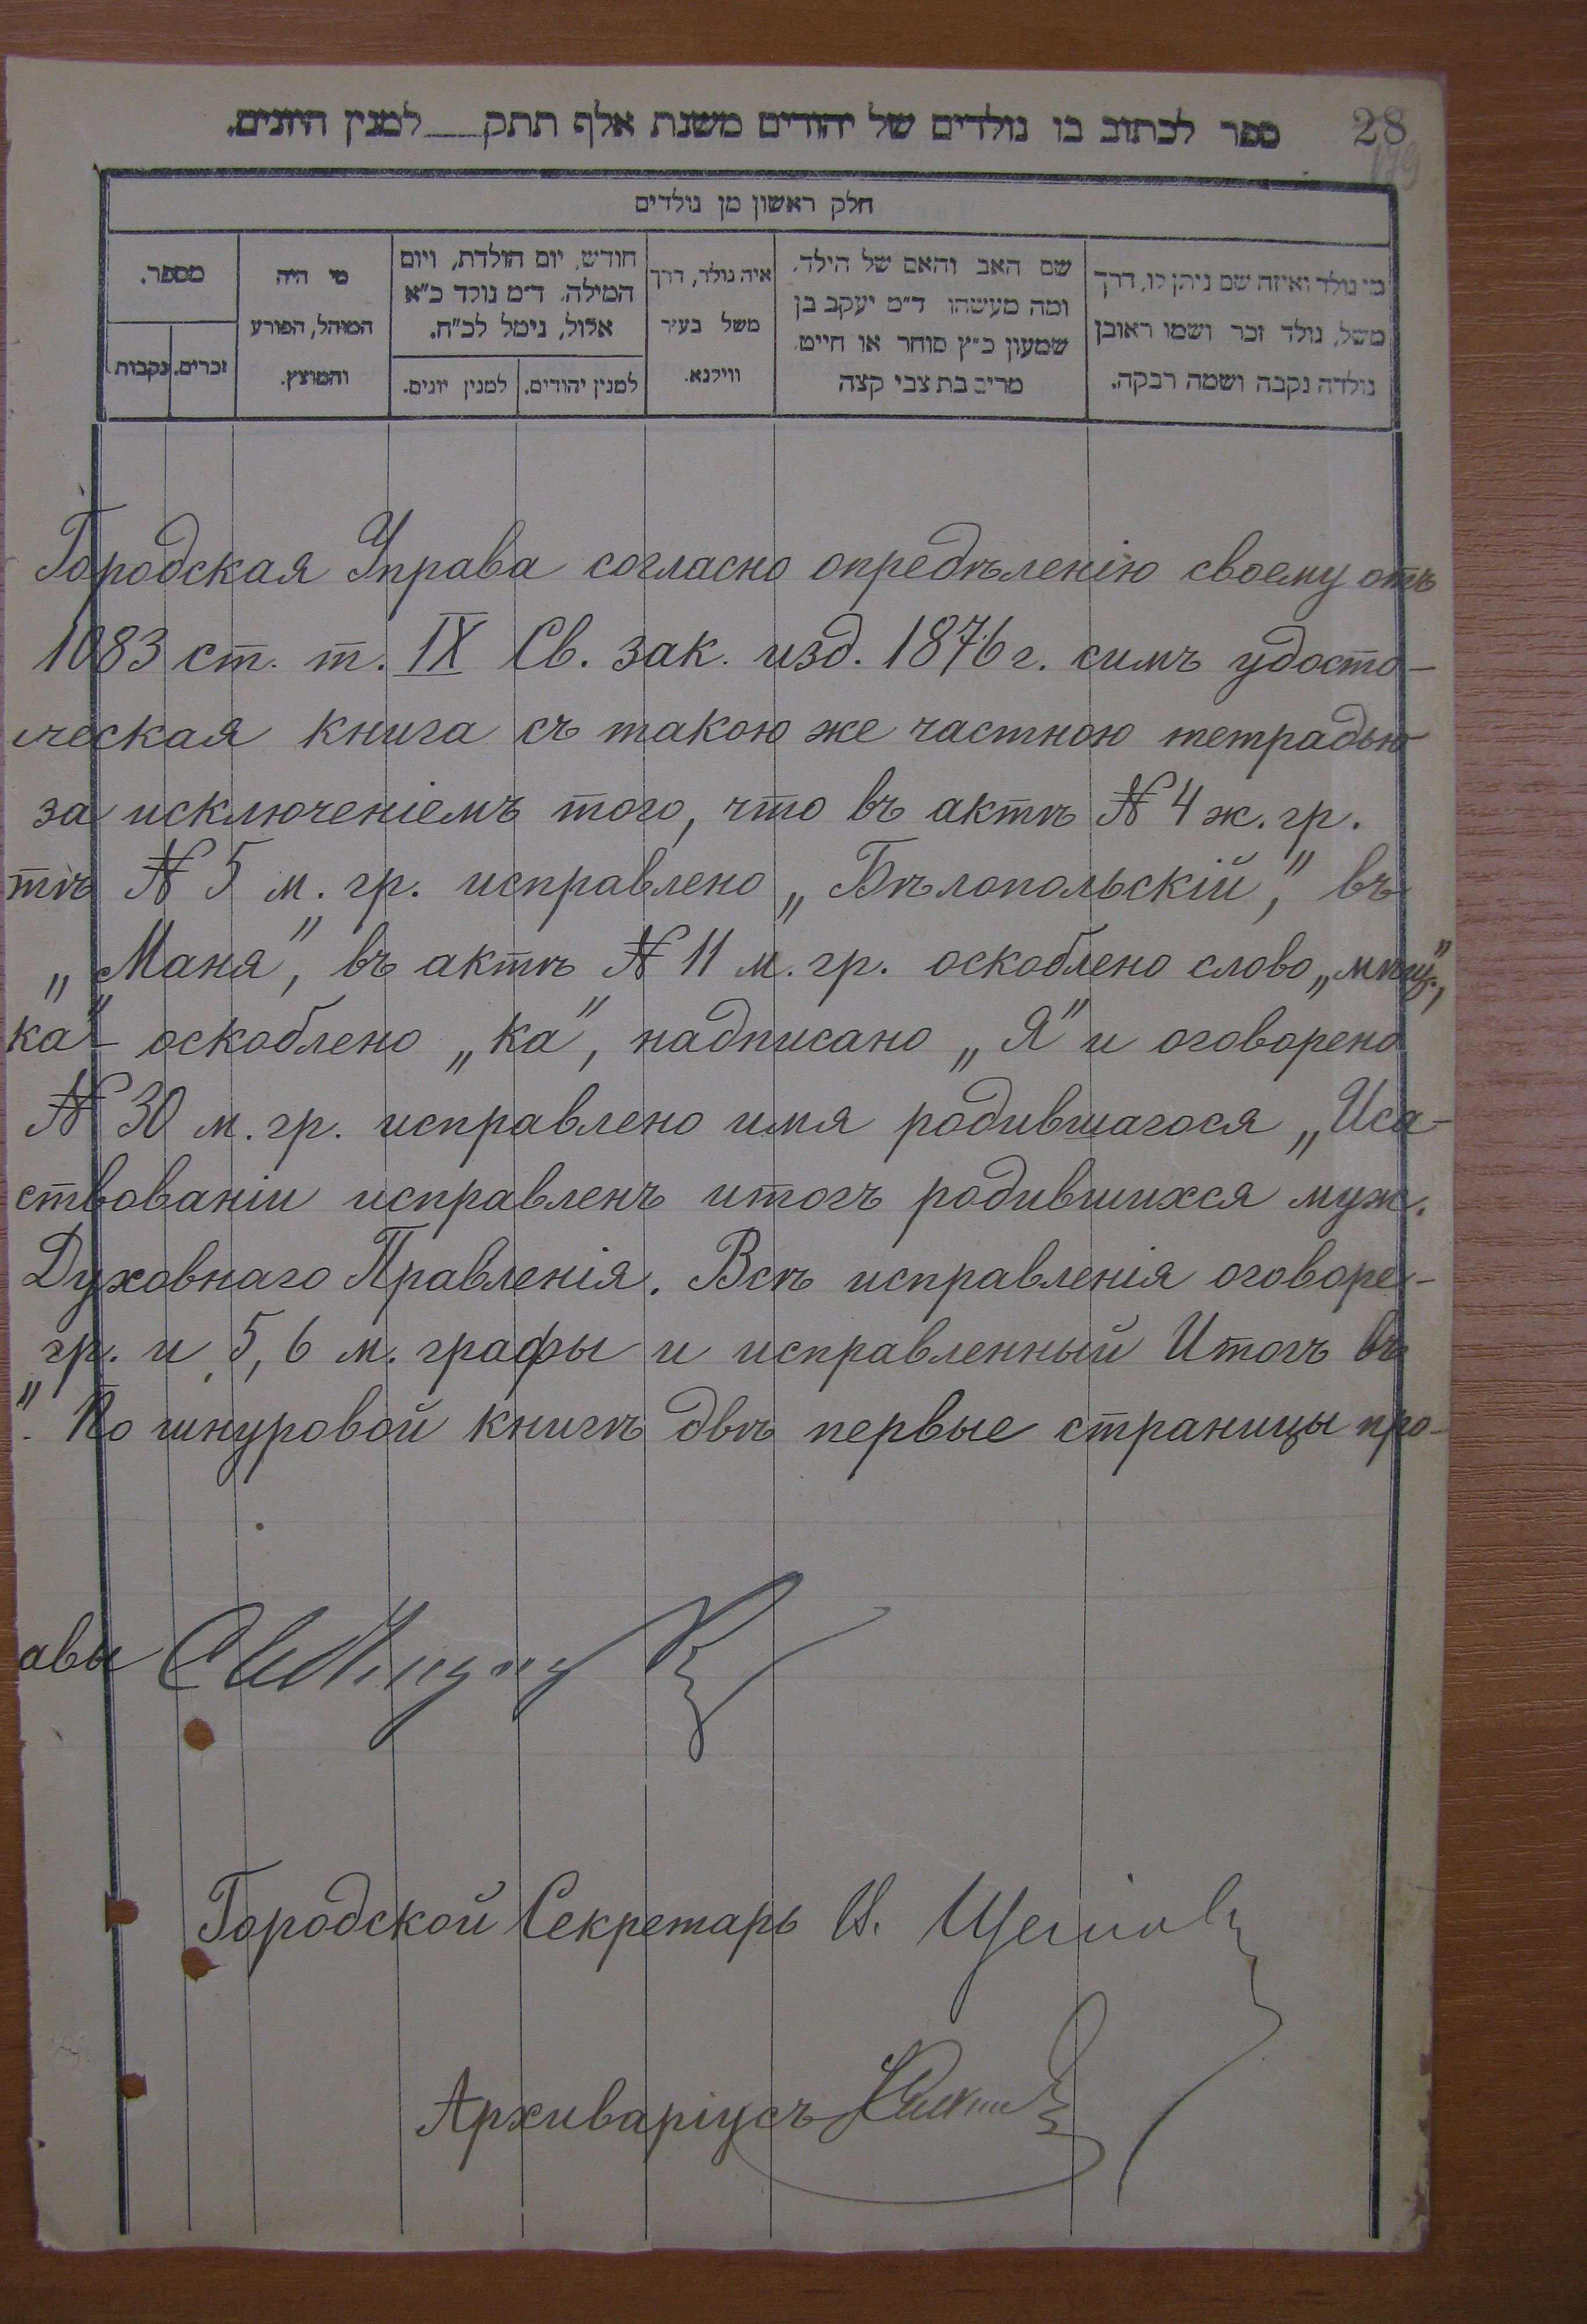 28
179
ספר לכתוב בו נולדים של יהודים משנת אלף תתק___למנין היונים.
חלק ראשון מן נולדים
מי נולד ואיזה שם ניתן לו, דרך
משל, נולד זכר ושמו ראובן
נולדה נקבה ושמה רבקה.
שם האב והאם של הילד,
ומה מעשהו ד״מ יעקב בן
שמעון כ״ץ סוחר או חייט,
מרים בת צבי קצה
איה נולד, דרך
משל בעיר
ווילנא.
חודש, יום הולדת, ויום
המילה, ד״מ נולד כ״א
אלול, נימל לכ״ח.
למנין יהודים.
למנין יונים.
מי היה
המוהל, הפורע
והמוצץ.
מספר.
זכרים.
נקבות
Городская Управа согласно опредѣленію своему отъ
1083 ст. т. IX Св. зак. изд. 1876 г. симъ удосто-
ческая книга съ такою же частною тетрадью
за исключеніемъ того, что въ актѣ № 4 ж. гр.
тѣ № 5 м. гр. исправлено „Бѣлопольскій", въ
„Маня", въ актѣ № 11 м. гр. оскоблено слово
ка" – оскоблено „ка", надписано „Я" и оговорено
№ 30 м. гр. исправлено имя родившагося „Иса-
ствованіи исправленъ итогъ родившихся муж.
Духовнаго Правленія. Всѣ исправленія оговоре-
гр. и 5, 6 м. графы и исправленный Итогъ въ
". По шнуровой книгѣ двѣ первые страницы про-
авы
Городской Секретарь И.
Архиваріусъ